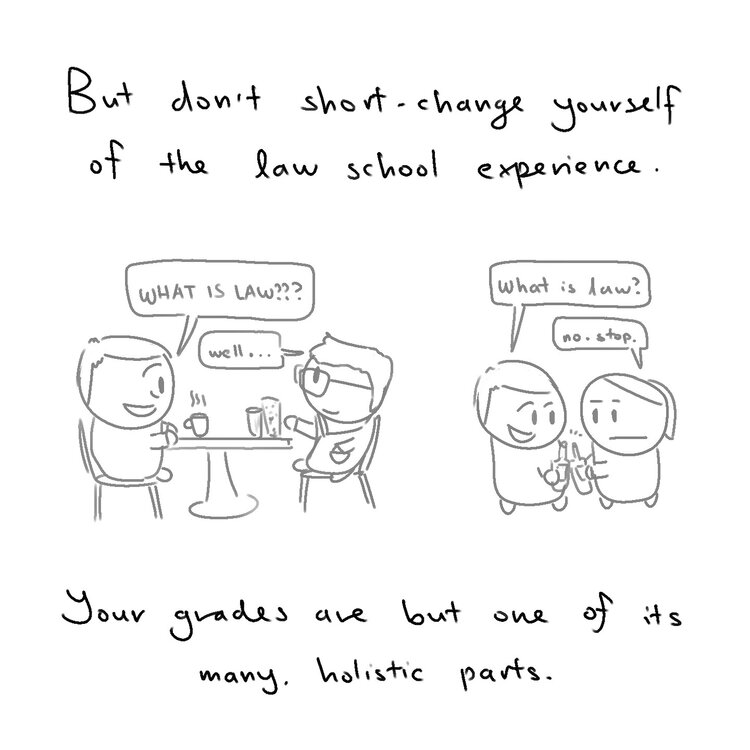 But don't short-change yourself
of the law school experience.
WHAT IS LAW???
well...
What is law?
no. stop.
Your grades are but one of its
many, holistic parts.